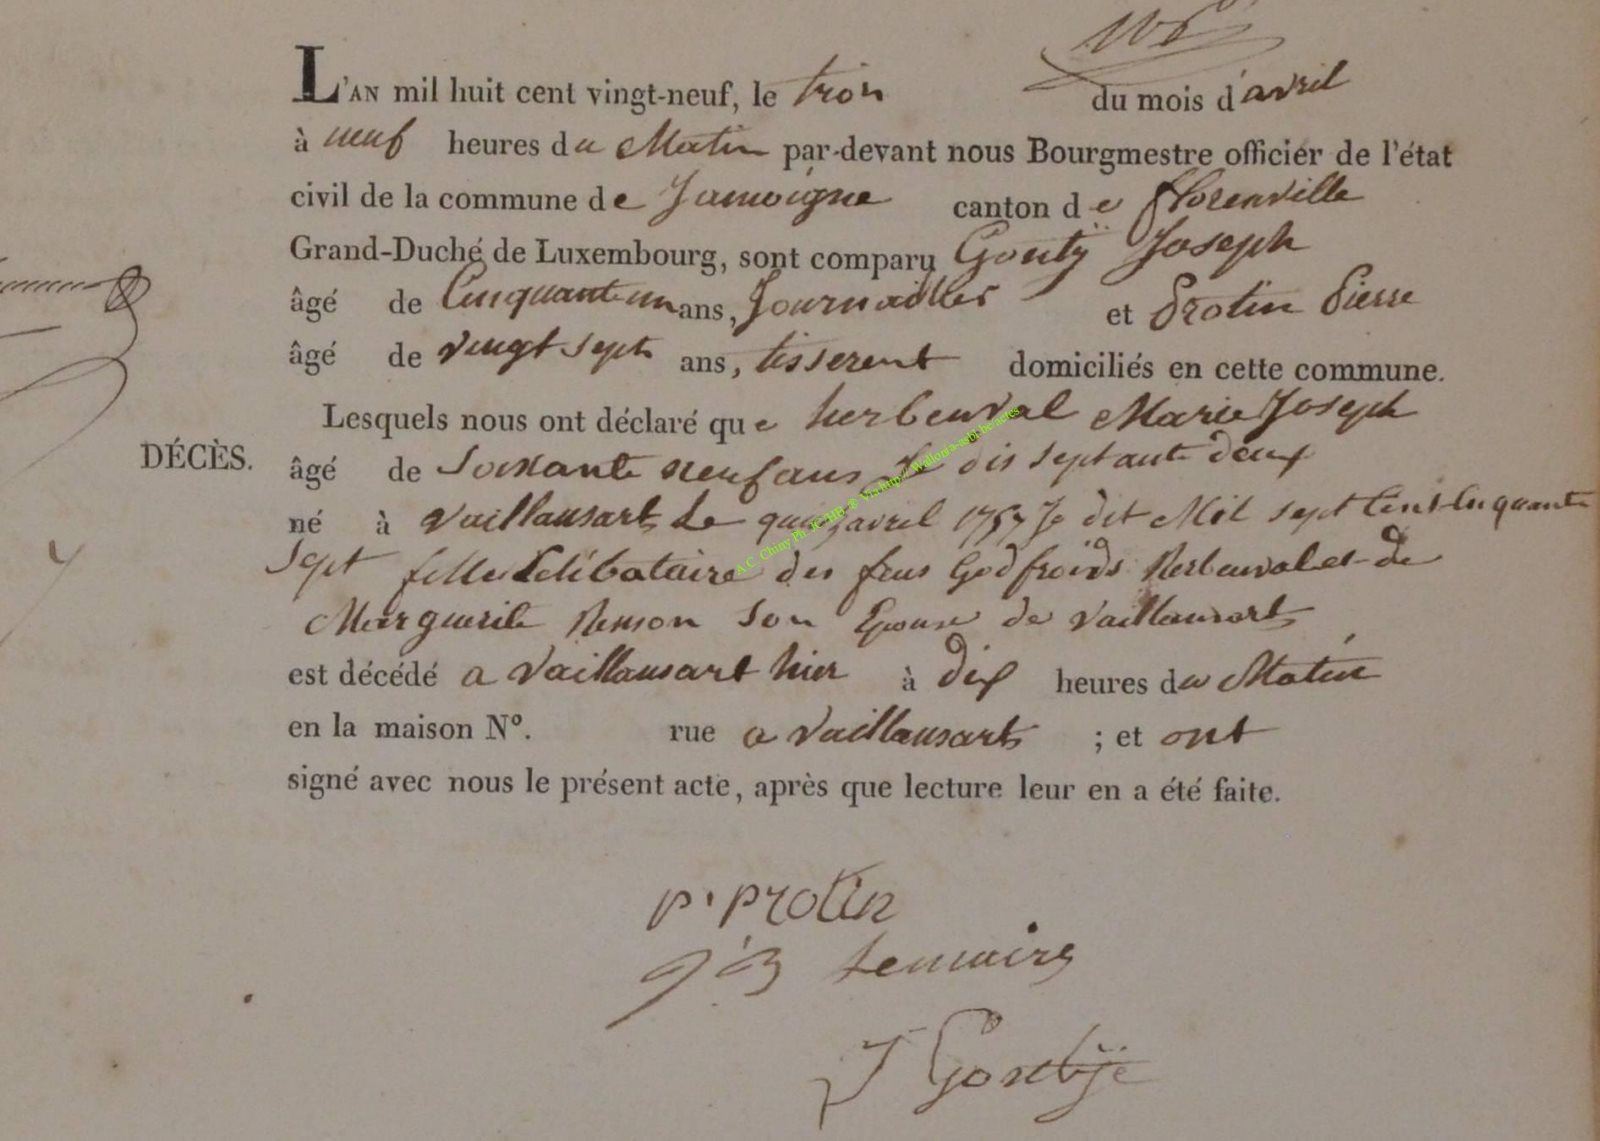 L'AN mil huit cent vingt-neuf, le trois du mois d'avril
à neuf heures du Matin par-devant nous Bourgmestre officier de l'état
civil de la commune de Jamoigne canton de florenville
Grand-Duché de Luxembourg, sont comparu Goutÿ Joseph
âgé de Cinquante un ans, Journailler et Protin Pierre
âgé de vingt sept ans, tisserent domiciliés en cette commune.
Lesquels nous ont déclaré que herbeuval Marie Joseph
DÉCÈS.
âgé de Soixante neuf ans Je dis septante deux
né à vaillansart Le avril 1757 Je dit Mil sept Cent Cinquante
sept fille Celibataire des feus Godfroids Herbeuval et de
Marguerite Remon son Epouse de vaillansart
est décédé a vaillansart hier à dix heures du Matin
en la maison N°. rue a vaillansart ; et ont
signé avec nous le présent acte, après que lecture leur en a été faite.
p. protin
Lemaire
J Goutÿe